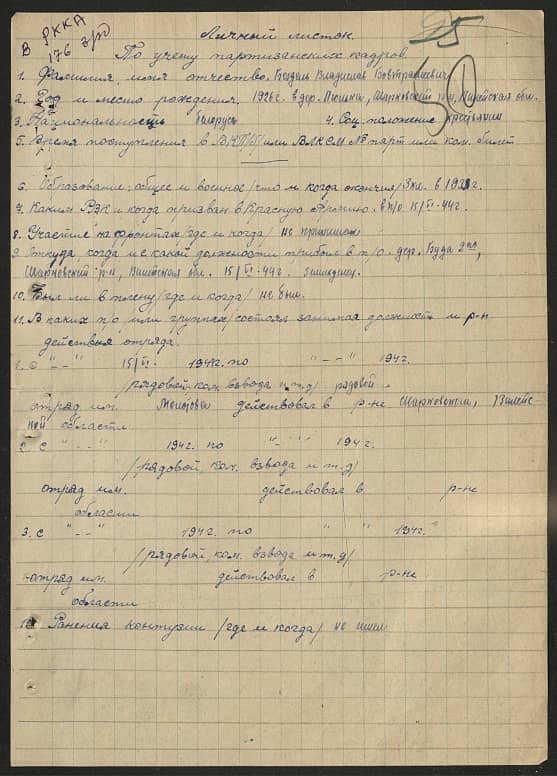 В РККА
176 зрд
Личный листок
По учету партизанских кадров.
1. Фамилия, имя отчество. Владислав
2. Год и место рождения. 1926 г. в дер. Шарковский р-н, Вилейская обл.
3. Национальность белорус 4. Соц. положение крестьянин
5. Время поступления в ВКП/б/ или ВЛКСМ № парт или ком. билет
6. Образование: общее и военное /что и когда окончил/ 3 кл. в г.
7. Каким РВК и когда призван в Красную Армию. в п/о 15/VI-44 г.
8. Участие на фронтах /где и когда/ не принимал
9. Откуда, когда и с какой должности прибыл в п/о. дер. Буда
Шарковский р-н, Вилейская обл. 15/VI-44 г.
10. Был ли в плену /где и когда/ не был.
11. В каких п/о, или группах состоял занимая должность и р-н
действия отряда.
1. С " - - " 15/VI 1944 г. по " - - " 194 г.
/рядовой, ком. взвода и т.д/ рядовой
отряд им. Молотова действовал в р-не Шарковском, Вилейс-
кой области.
2. с " - - " 194 г. по " - " 194 г.
/рядовой, ком. взвода и т.д/
отряд им. действовал в р-не
области
3. с " - - " 194 г. по " " 194 г.
/рядовой, ком. взвода и т.д/
отряд им. действовал в р-не
области
12. Ранения контузии /где и когда/ не имел